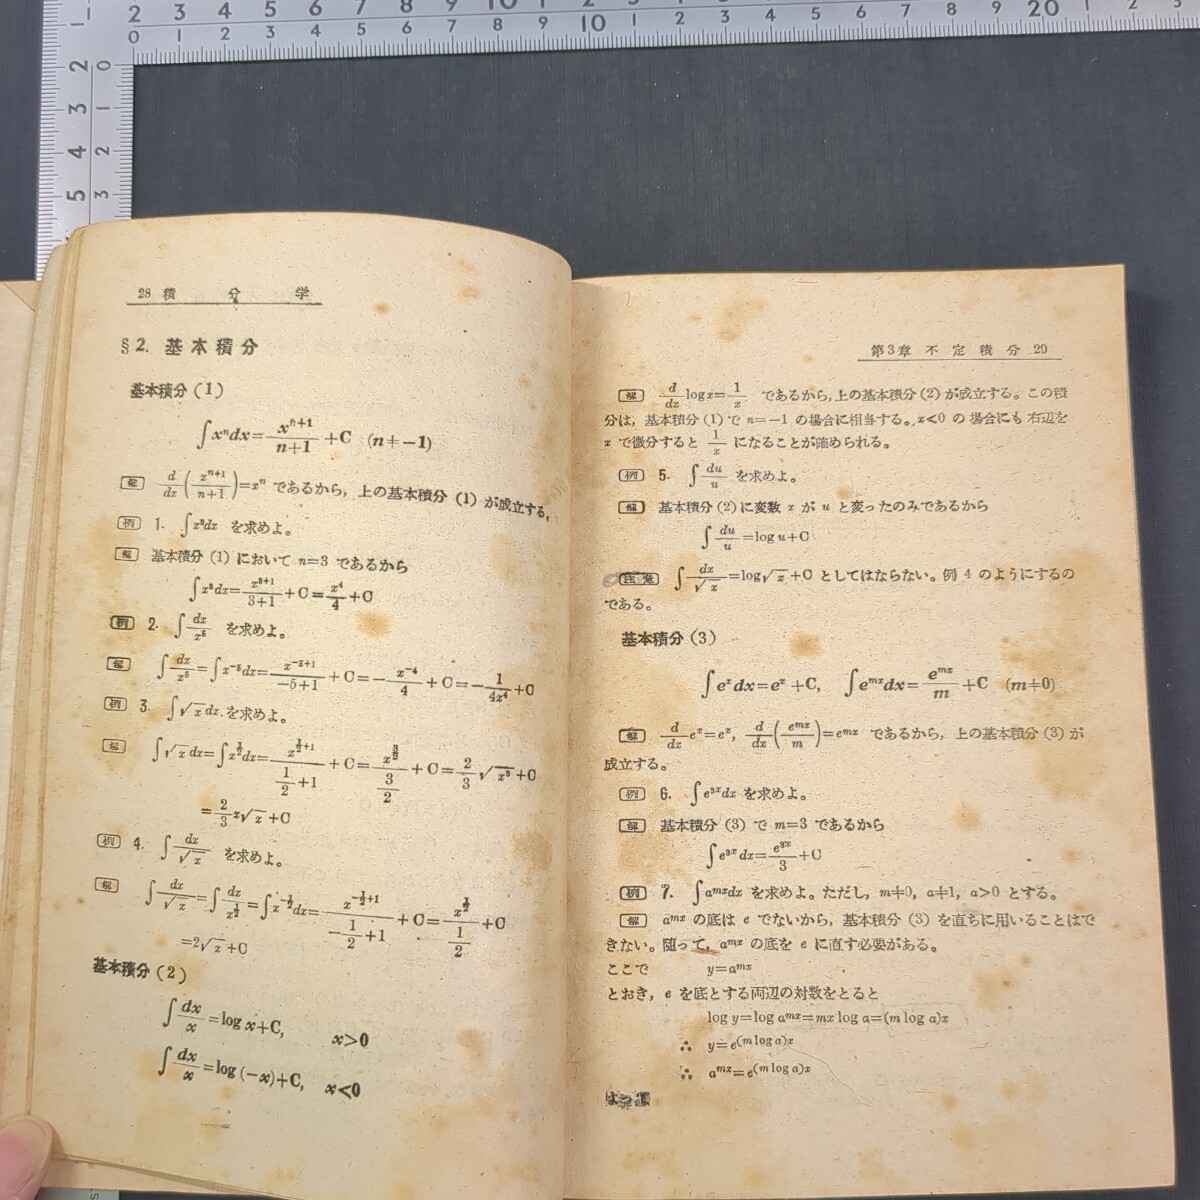 28 積 分 学
§2. 基本積分
基本積分 (1)
∫xⁿdx = xⁿ⁺¹/(n+1) + C (n≠−1)
解 d/dx(xⁿ⁺¹/(n+1))=xⁿ であるから, 上の基本積分 (1) が成立する。
例 1. ∫x³dx を求めよ。
解 基本積分 (1) において n=3 であるから
∫x³dx = x³⁺¹/(3+1) + C = x⁴/4 + C
例 2. ∫dx/x⁵ を求めよ。
解 ∫dx/x⁵ = ∫x⁻⁵dx = x⁻⁵⁺¹/(−5+1) + C = −x⁻⁴/4 + C = −1/(4x⁴) + C
例 3. ∫√x dx を求めよ。
解 ∫√x dx = ∫x^(1/2)dx = x^(1/2+1)/(1/2+1) + C = x^(3/2)/(3/2) + C = 2/3 √x³ + C
= 2/3 x√x + C
例 4. ∫dx/√x を求めよ。
解 ∫dx/√x = ∫dx/x^(1/2) = ∫x^(−1/2)dx = x^(−1/2+1)/(−1/2+1) + C = x^(1/2)/(1/2) + C
=2√x + C
基本積分 (2)
∫dx/x = log x + C, x>0
∫dx/x = log (−x) + C, x<0
第3章 不 定 積 分 29
解 d/dx log x = 1/x であるから, 上の基本積分 (2) が成立する。この積
分は, 基本積分 (1) で n=−1 の場合に相当する。x<0 の 場合にも 右辺を
x で微分すると 1/x になることが確められる。
例 5. ∫du/u を求めよ。
解 基本積分 (2) に変数 x が u と変ったのみであるから
∫du/u = log u + C
注意 ∫dx/√x = log√x + C としてはならない。例 4 のようにするの
である。
基本積分 (3)
∫eˣdx = eˣ + C, ∫eᵐˣdx = eᵐˣ/m + C (m≠0)
解 d/dx eˣ = eˣ, d/dx(eᵐˣ/m) = eᵐˣ であるから, 上の基本積分 (3) が
成立する。
例 6. ∫e³ˣdx を求めよ。
解 基本積分 (3) で m=3 であるから
∫e³ˣdx = e³ˣ/3 + C
例 7. ∫aᵐˣdx を求めよ。ただし, m≠0, a≠1, a>0 とする。
解 aᵐˣ の底は e でないから, 基本積分 (3) を直ちに用いることはで
きない。随って, aᵐˣ の底を e に直す必要がある。
ここで y=aᵐˣ
とおき, e を底とする両辺の対数をとると
log y=log aᵐˣ=mx log a=(m log a)x
∴ y=e^(m log a)x
∴ aᵐˣ=e^(m log a)x